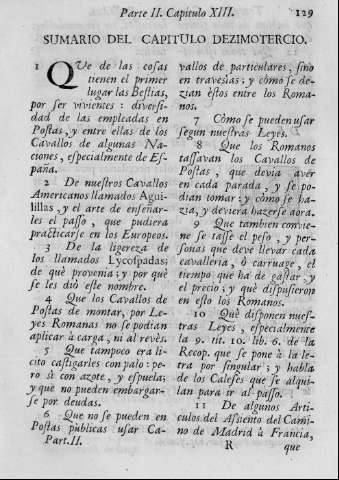 Parte II. Capitulo XIII. 129
SUMARIO DEL CAPITULO DEZIMOTERCIO.
1 QUe de las cosas
tienen el primer
lugar las Bestias,
por ser vivientes : diversi-
dad de las empleadas en
Postas, y entre ellas de los
Cavallos de algunas Na-
ciones, especialmente de Es-
paña.
2 De nuestros Cavallos
Americanos llamados Agui-
lillas, y el arte de enseñar-
les el passo, que pudiera
practicarse en los Europeos.
3 De la ligereza de
los llamados Lycospadas;
de què provenia; y por què
se les diò este nombre.
4 Que los Cavallos de
Postas de montar, por Le-
yes Romanas no se podian
aplicar à carga, ni al revès.
5 Que tampoco era li-
cito castigarles con palo: pe-
ro sì con azote, y espuela;
y que no pueden embargar-
se por deudas.
6 Que no se pueden en
Postas pùblicas usar Ca-
Part.II.
vallos de particulares, sino
en travesìas; y còmo se de-
zian èstos entre los Roma-
nos.
7 Còmo se pueden usar
segun nuestras Leyes.
8 Que los Romanos
tassavan los Cavallos de
Postas, que devia aver
en cada parada, y se po-
dian tomar; y còmo se ha-
zia, y deviera hazerse aora.
9 Que tambien convie-
ne se tasse el peso, y per-
sonas que deve llevar cada
cavalleria, ò carruage, el
tiempo que ha de gastar, y
el precio; y què dispusieron
en esto los Romanos.
10 Què disponen nues-
tras Leyes, especialmente
la 9. tit. 10. lib. 6. de la
Recop. que se pone à la le-
tra por singular; y habla
de los Caleses que se alqui-
lan para ir al passo.
11 De algunos Arti-
culos del Assiento del Cami-
no de Madrid à Francia,
R que